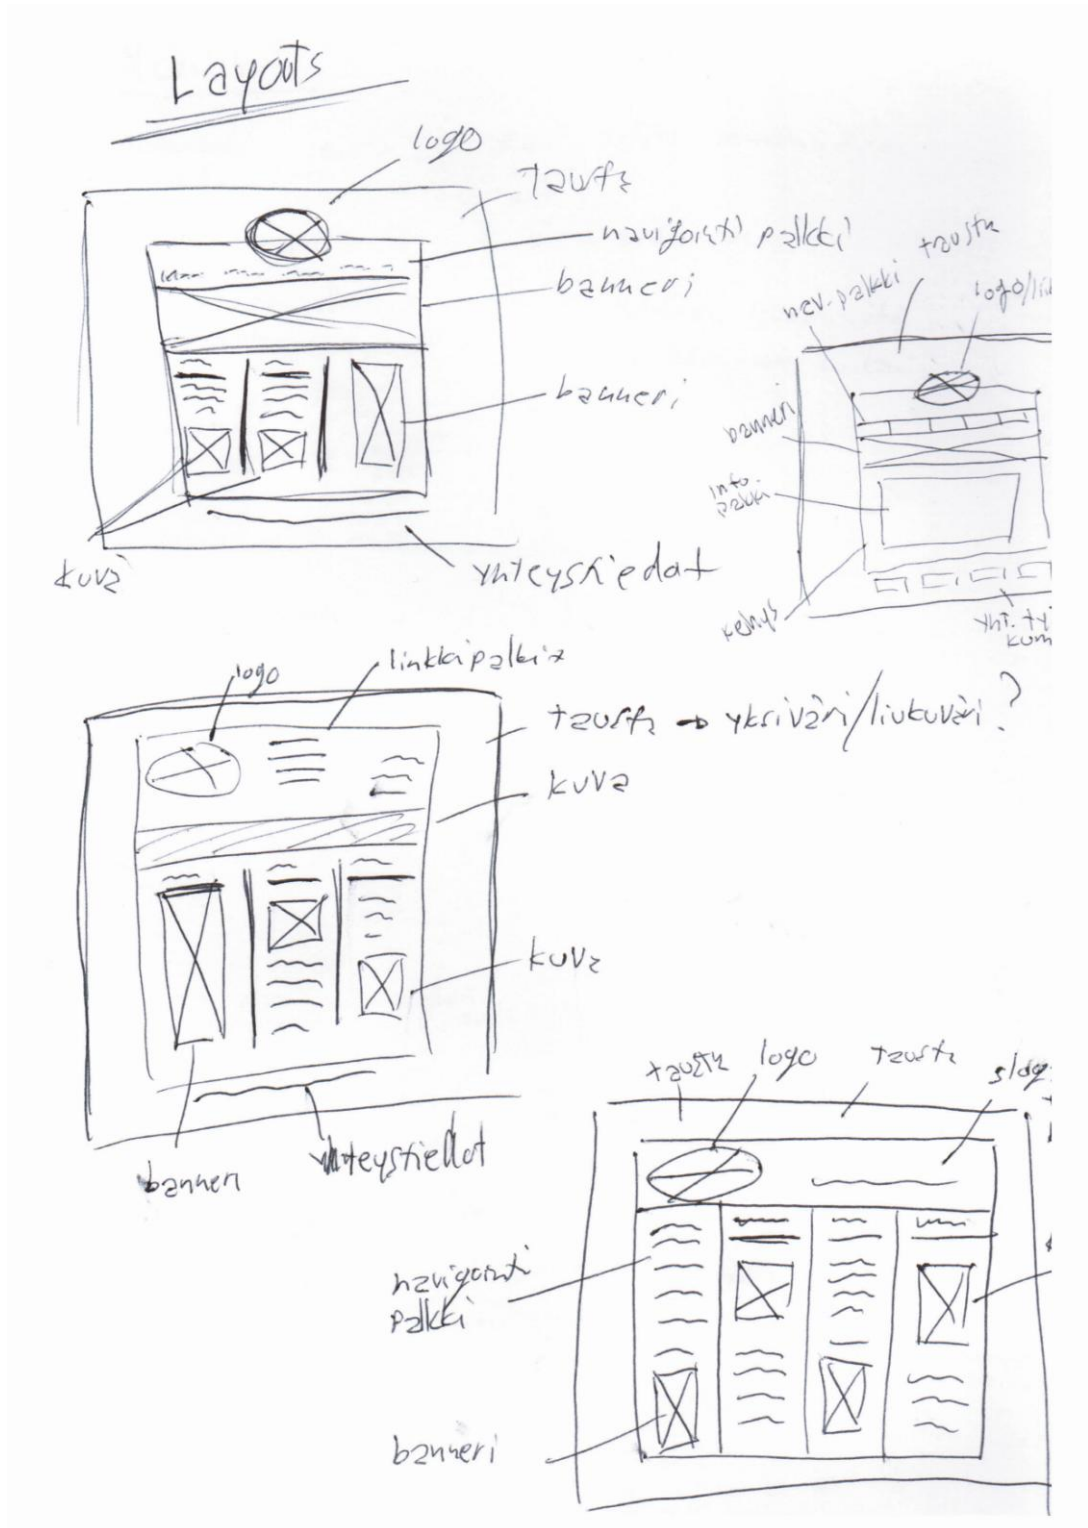 Layouts
logo
tausta
navigointi palkki
banneri
banneri
kuva
yhteystiedat
tausta
nav-palkki
logo/lin
banneri
info
palkki
kehys
yht. ty
kum
logo
linkkipalkia
tausta → yksiväri/liukuväri?
kuva
kuva
banneri
yhteystiedot
tausta
logo
tausta
slog
navigointi
palkki
banneri